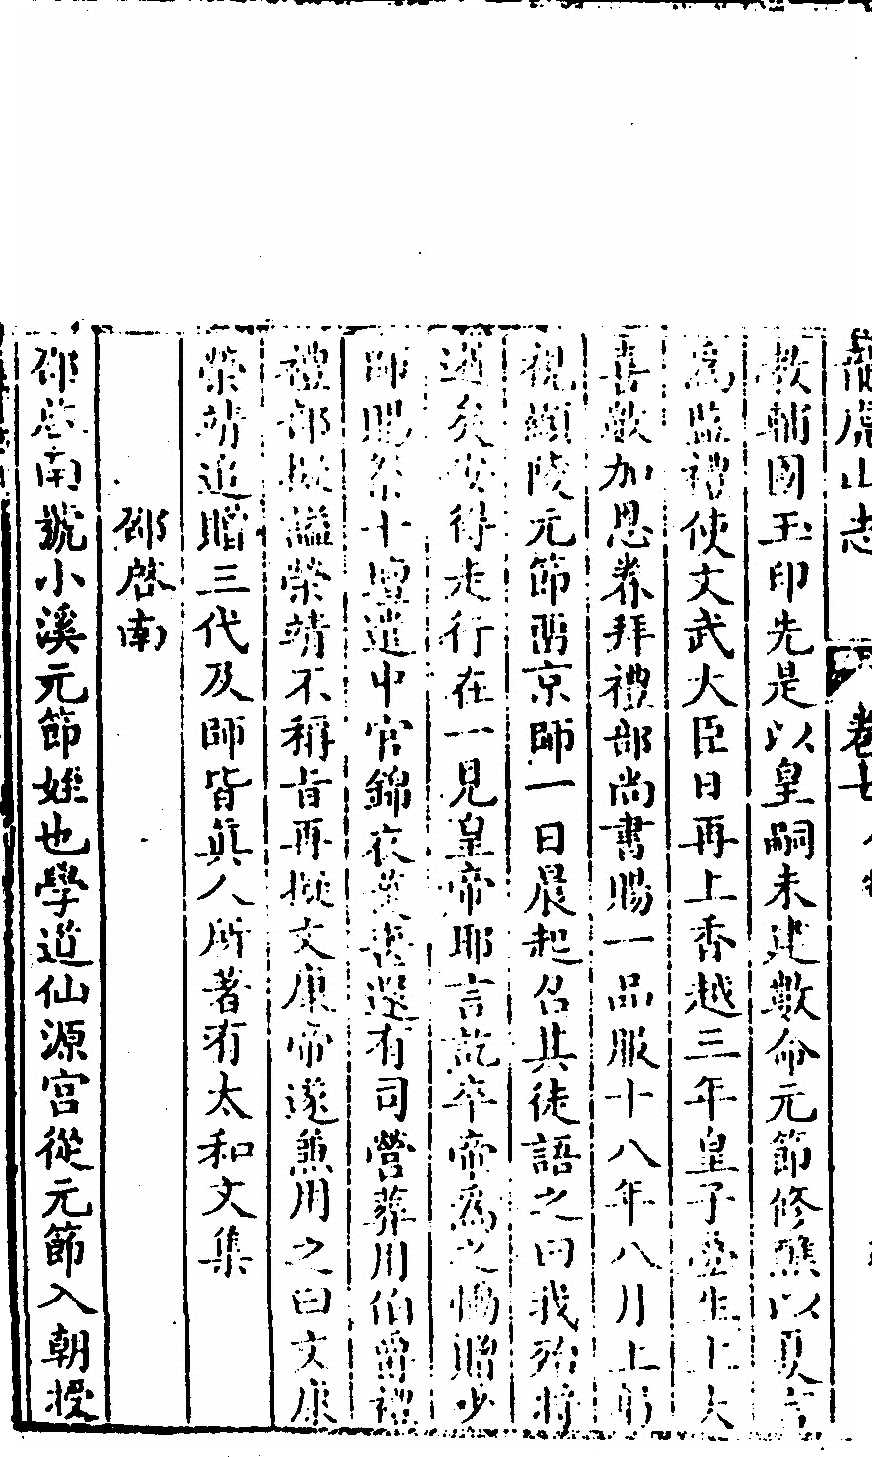 龍虎山志 卷七 人物
教輔國玉印先是以皇嗣未建數命元節修醮以夏言
為監禮使文武大臣日再上香越三年皇子疊生上大
喜數加恩眷拜禮部尚書賜一品服十八年八月上躬
視顯陵元節留京師一日晨起召其徒語之曰我殆將
逝矣安得走行在一見皇帝耶言訖卒帝為之慟贈少
師賜祭十壇遣中官錦衣護喪還有司營葬用伯爵禮
禮部擬謚榮靖不稱旨再擬文康帝遂兼用之曰文康
榮靖追贈三代及師皆真人所著有太和文集
邵啓南
邵啓南號小溪元節姪也學道仙源宮從元節入朝授